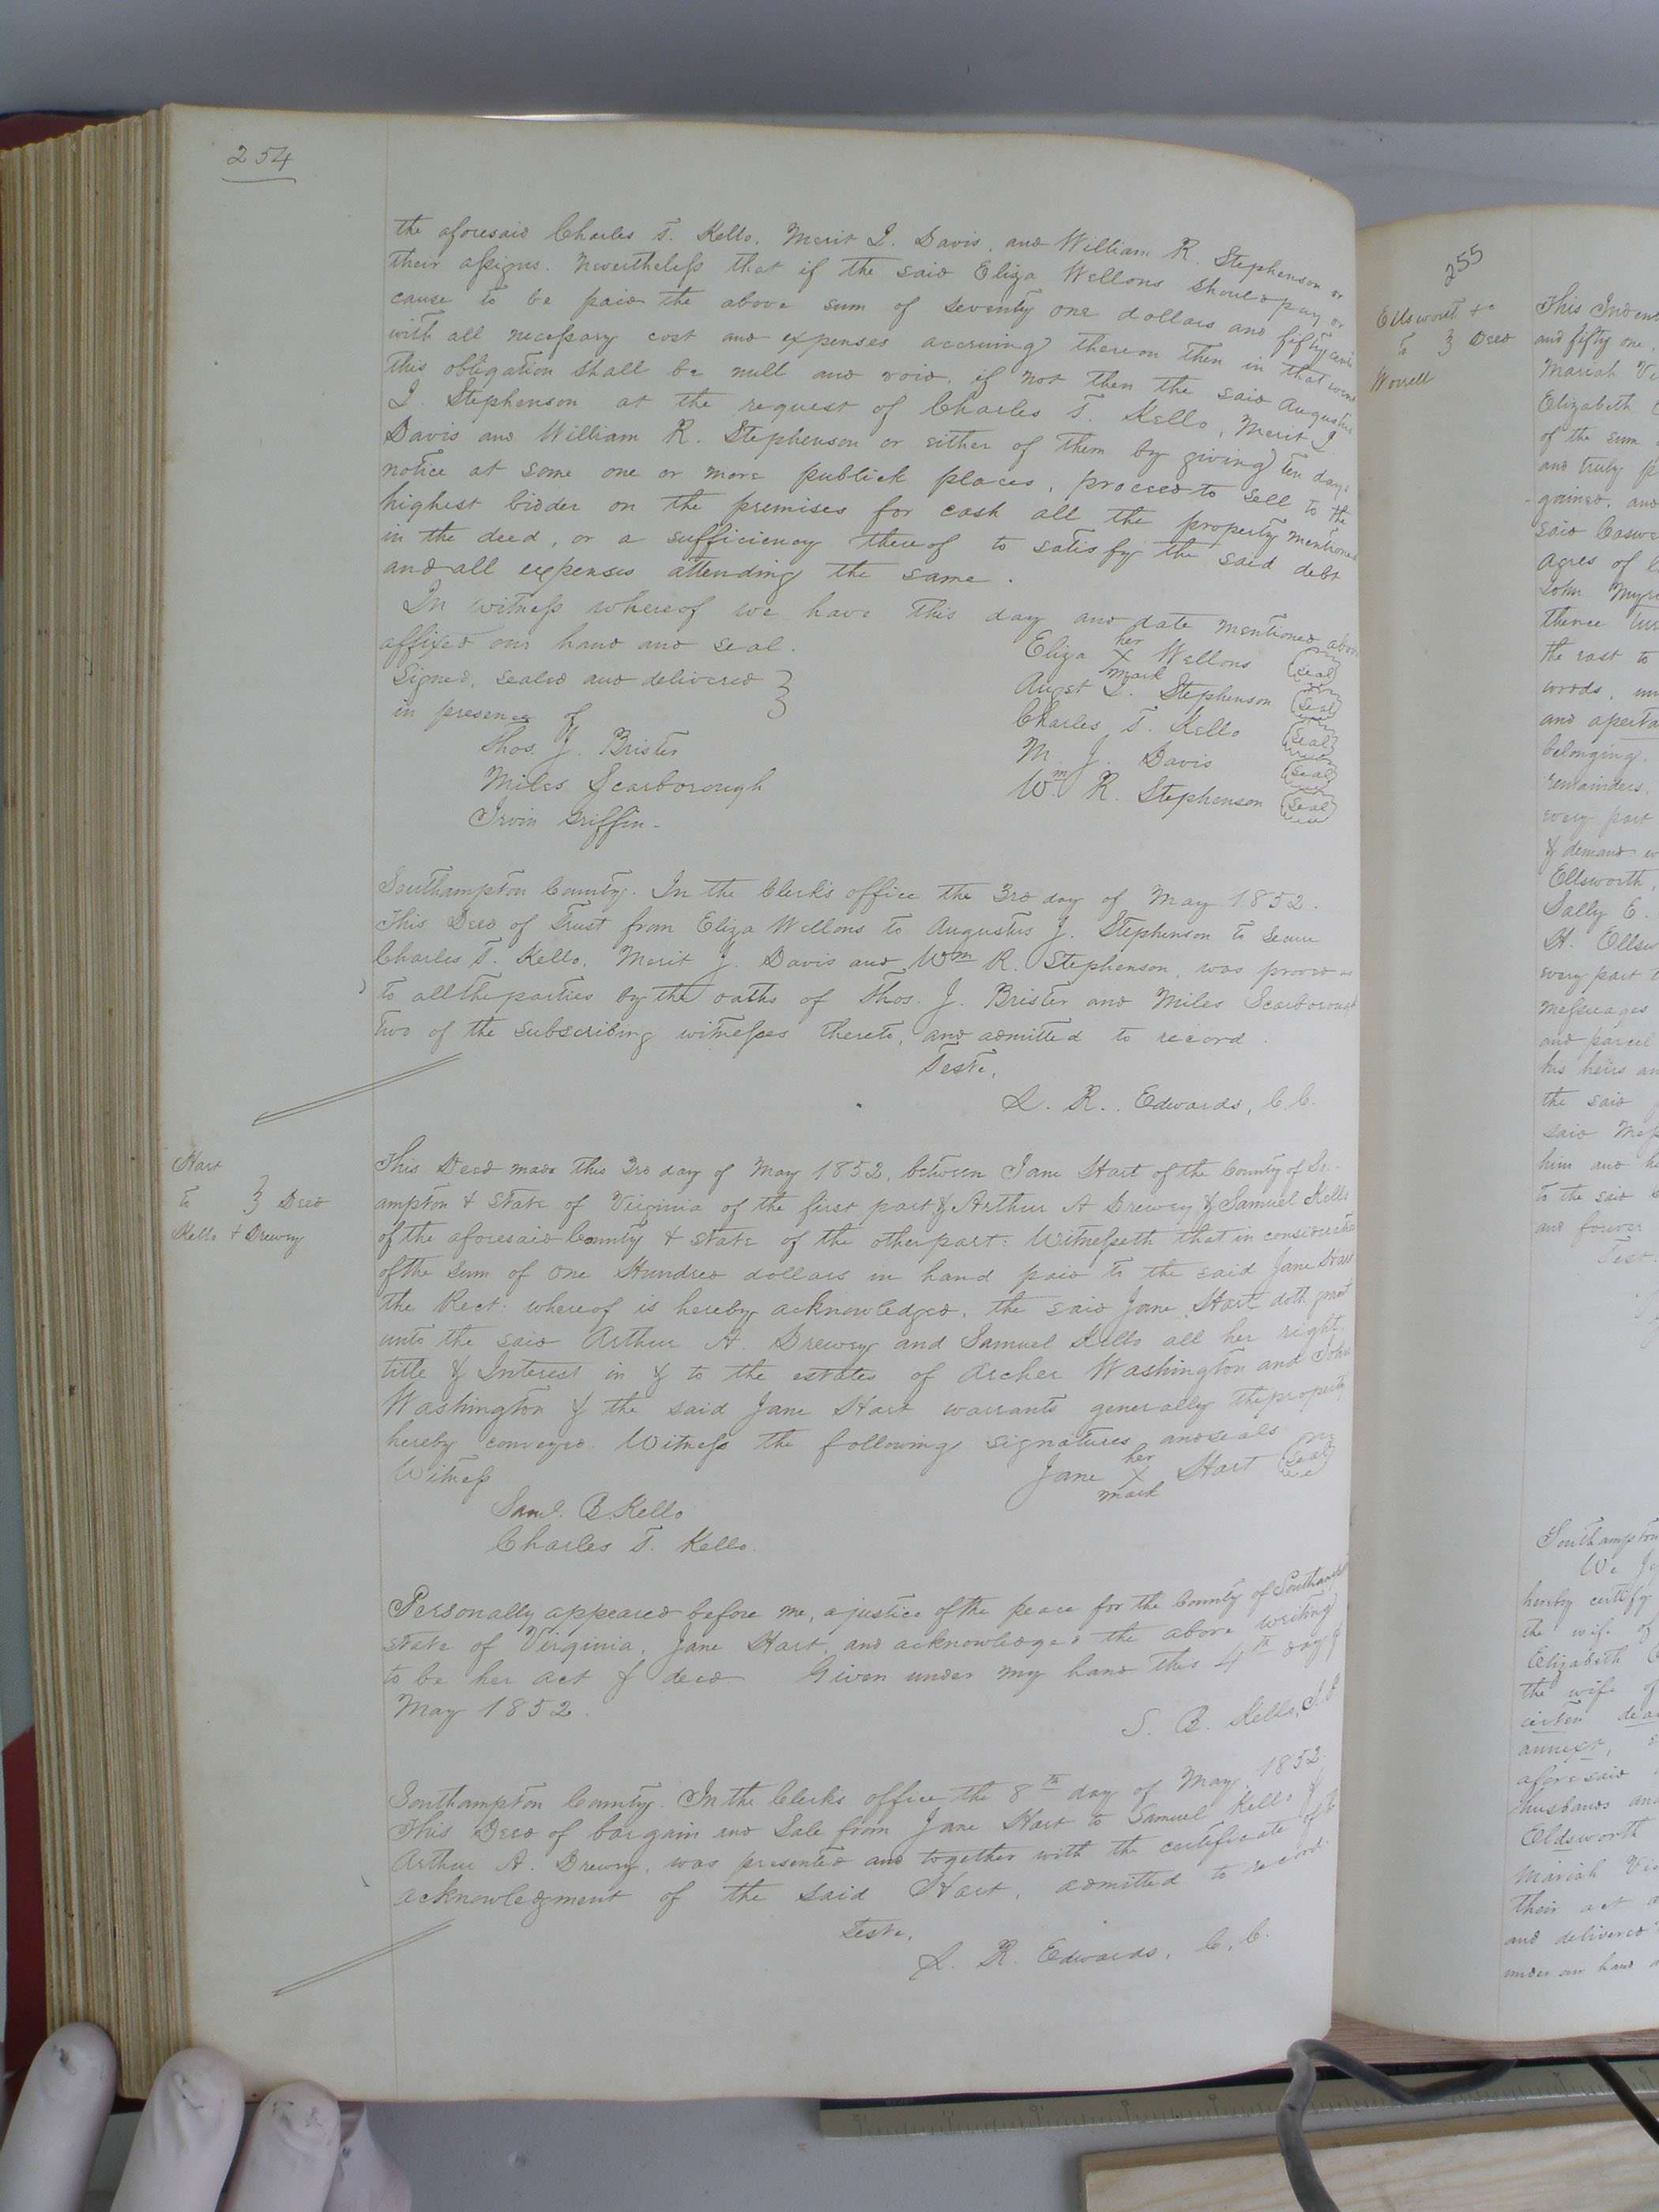 254
the aforesaid Charles T. Kello, Merit J. Davis, and William R. Stephenson or
their assigns. Nevertheless that if the said Eliza Wellons should pay or
cause to be paid the above sum of seventy one dollars and fifty cents
with all necessary cost and expenses accruing thereon then in that event
this obligation shall be null and void, if not then the said Augustus
J. Stephenson at the request of Charles T. Kello, Merit J.
Davis and William R. Stephenson or either of them by giving ten days
notice at some one or more publick places, proceed to sell to the
highest bidder on the premises for cash all the property mentioned
in the deed, or a sufficiency thereof to satisfy the said debt
and all expenses attending the same.
In witness whereof we have this day and date mentioned above
affixed our hand and seal.
Signed, sealed and delivered
in presence of
Thos. J. Brister
Miles Scarborough
Irvin Griffin
her
Eliza X Wellons seal
mark
Augst J. Stephenson seal
Charles T. Kello seal
M. J. Davis seal
Wm R. Stephenson seal
Southampton County. In the Clerk's office the 3rd day of May 1852.
This Deed of Trust from Eliza Wellons to Augustus J. Stephenson to secure
Charles T. Kello, Merit J. Davis and Wm R. Stephenson, was proved as
to all the parties by the oaths of Thos. J. Brister and Miles Scarborough
two of the subscribing witnesses thereto, and admitted to record.
Teste,
L. R. Edwards, C.C.
Hart
to } Deed
Kello & Drewry
This Deed made this 3rd day of May 1852, between Jane Hart of the County of
ampton & State of Virginia of the first part & Arthur A Drewry & Samuel Kello
of the aforesaid County & State of the other part: Witnesseth that in consideration
of the sum of One Hundred dollars in hand paid to the said Jane Hart
the Rect: whereof is hereby acknowledged, the said Jane Hart doth grant
unto the said Arthur A. Drewry and Samuel Kello all her right
title & Interest in & to the estates of Archer Washington and John
Washington & the said Jane Hart warrants generally the property
hereby conveyed. Witness the following signatures and seals
Witness
her
Jane X Hart seal
mark
Saml. B. Kello
Charles T. Kello.
Personally appeared before me, a justice of the peace for the County of Southampton
State of Virginia, Jane Hart, and acknowledged the above writing
to be her act & deed Given under my hand this 4th day of
May 1852.
S. B. Kello, J.P.
Southampton County. In the Clerks office the 8th day of May 1852.
This Deed of bargain and Sale from Jane Hart to Samuel Kello &
Arthur A. Drewry, was presented and together with the certificate of
acknowledgment of the said Hart, admitted to record.
Teste,
L. R. Edwards, C.C.
255
Ellsworth &c
to } Deed
Worrell
This Inden
and fifty one,
Mariah
Elizabeth
of the sum
and truly
gained, and
said
Acres of
John
thence
the east to
woods,
and aperta
belonging,
remainders,
every part
& demand
Ellsworth,
Sally E.
H. Ellsw
every part
messuages
and parcel
his heirs an
the said
said
him and
to the said
and forever
Test.
Southampton
We
hereby certify
the wife of
Elizabeth
the wife of
certen
annext,
aforesaid
husbands and
Eldsworth
Mariah
their act
and delivered
under our hand